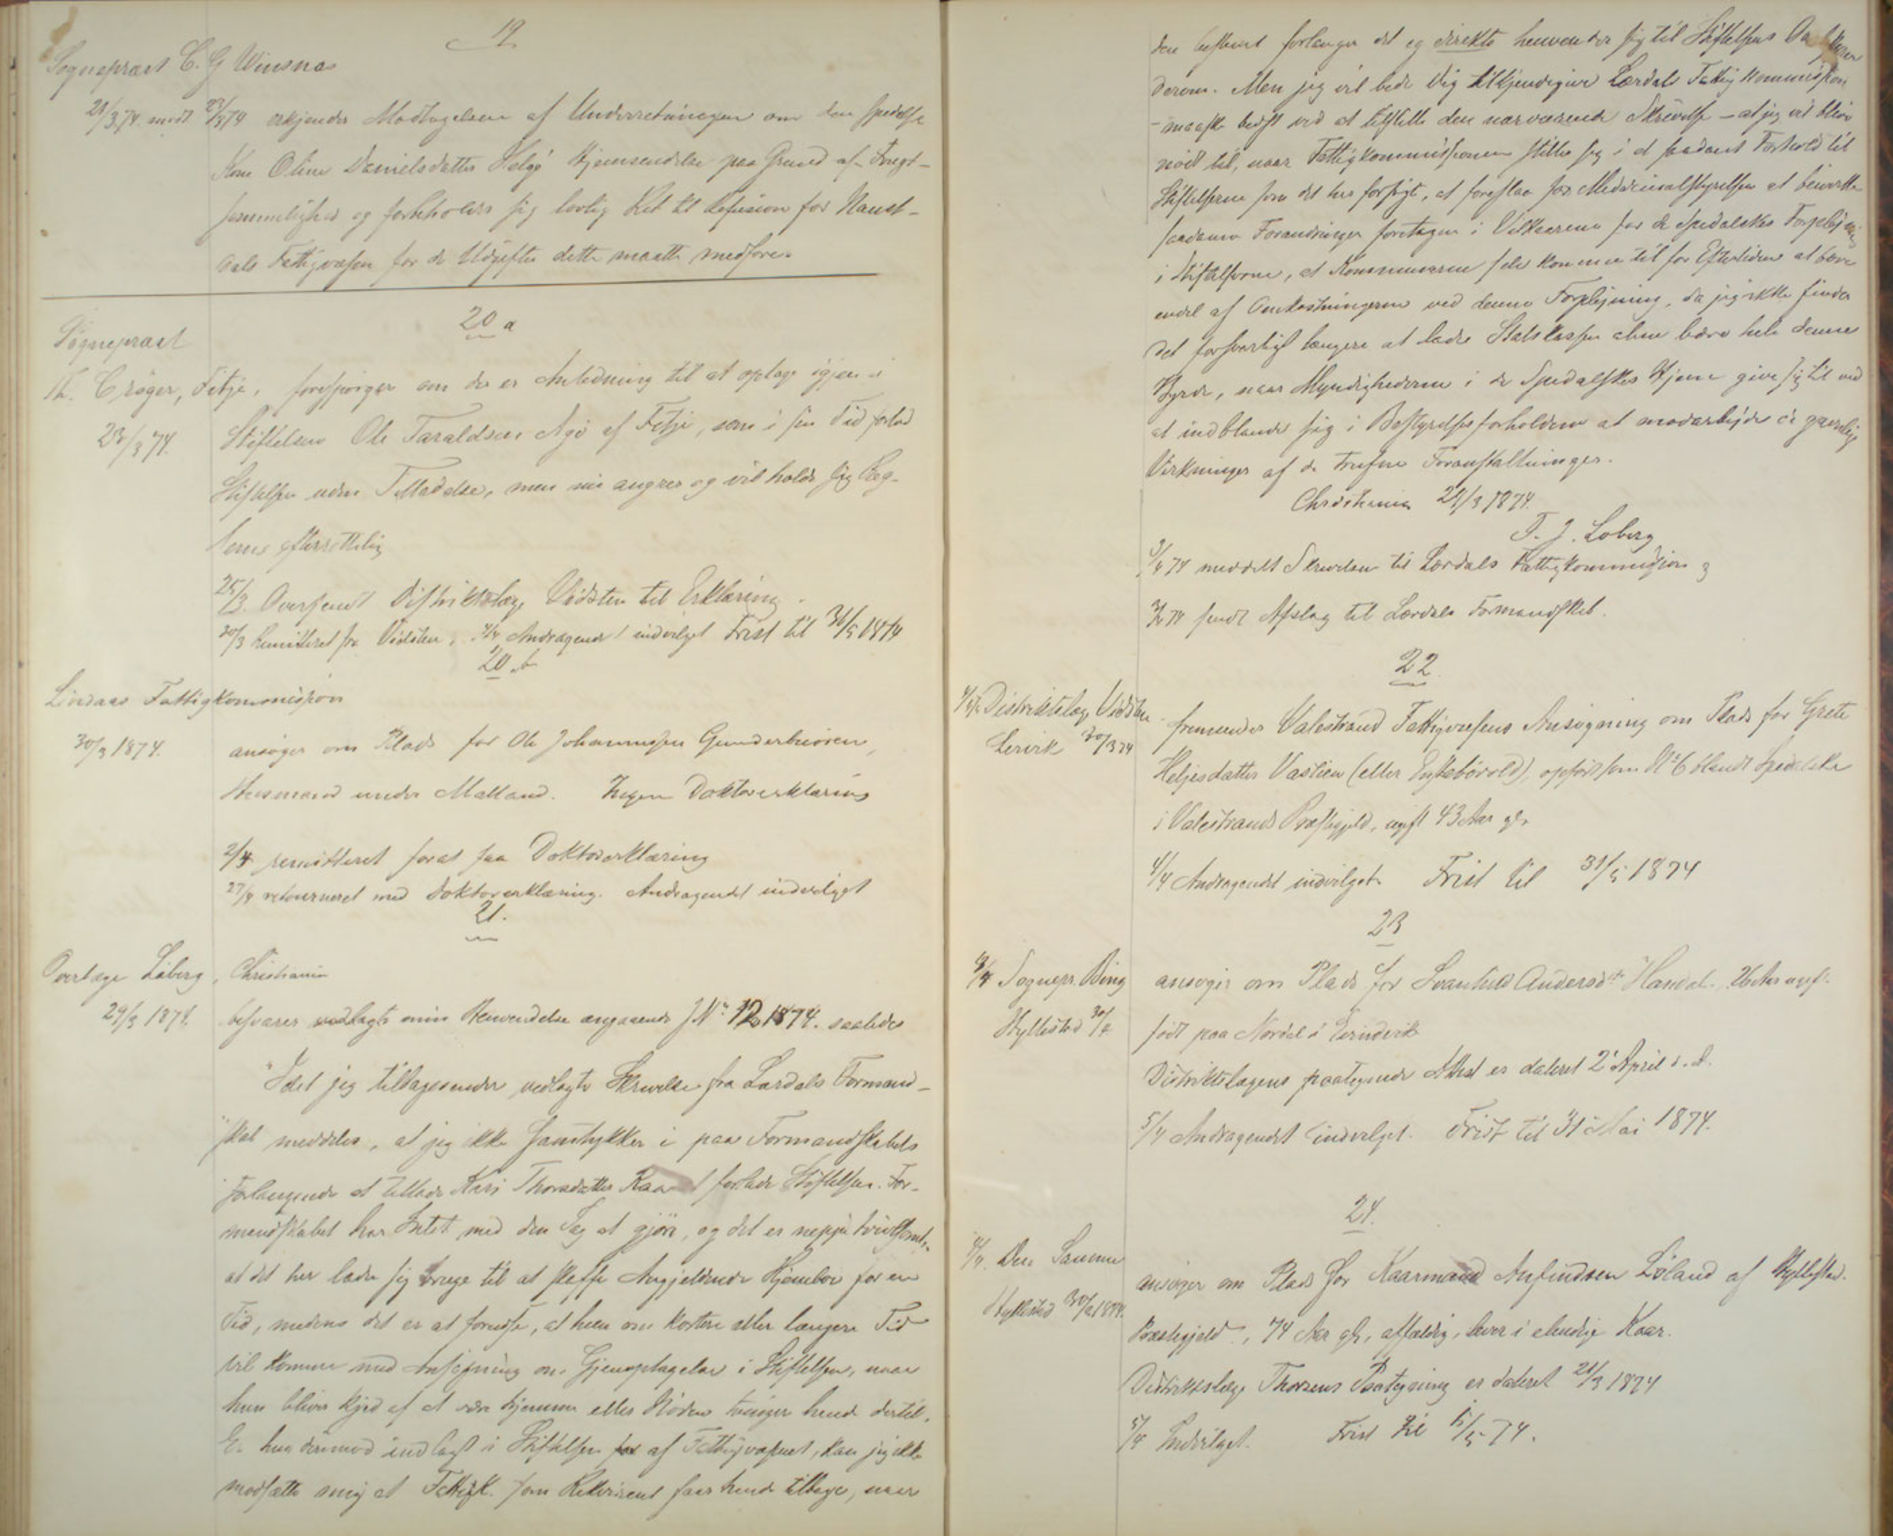 19
Sognepræst C. G Winsnæs
28/3 74. modt 23/3 74 erkjender Modtagelsen af Underretningen om den spedalske
Kone Oline Danielsdatter Helgø Hjemsendelse paa Grund af
sommelighed og forbeholder sig lovlig Ret til Refusion for Naust-
dals Fattigvæsen for de Udgifter dette maatte medføre.
20 a
Sognepræst
Th. Crøger, Fitje, forespørger om der er Anledning til at optage igjen i
23/3 74. Stiftelsen Ole Taraldsen Agø af Fitje, som i sin Tid forlod
Stiftelsen uden Tilladelse, men nu angrer og vil holde sig Reg-
lerne efterrettelig
25/3. Oversendt Distriktslæge Vidsten til Erklæring.
30/3 Remitteret fra Vidsten, 4/4 Andragendet indvilget Frist til 31/5 1874
20 b
Lindaas Fattigkommission
30/3 1874. ansøger om Plads for Ole Johannessen
Husmand under Molland. Ingen Doktorerklæring
2/4 remitteret forat faa Doktorerklæring
27/4 retourneret med Doktorerklæring. Andragendet indvilget
21.
Overlæge Løberg, Christiania
29/3 1874. besvarer vedlagte min Henvendelse angaaende J.Nr 12 1874. saaledes
"Idet jeg tilbagesender vedlagte Skrivelse fra Lærdals Formand-
"skab meddeles, at jeg ikke samtykker i paa Formandskabets
Forlangende at tillade Kari Thorsdatter at forlade Stiftelsen. For-
mandskabet har Intet med den Sag at gjøre, og det er neppe tvivlsomt,
at det her lader sig bruge til at skaffe Angjeldende Hjemlov for en
Tid, medens det er at forudse, at hun om kortere eller længere Tid
vil komme med Ansøgning om Gjenoptagelse i Stiftelsen, naar
hun bliver kjed af at være hjemme eller Nøden tvinger hende dertil.
Er hun derimod indlagt i Stiftelsen af Fattigvæsnet, kan jeg ikke
modsætte mig at Fattigk. som Rekvirent faar hende tilbage, naar
den bestemt forlanger det og direkte henvender sig til Stiftelsens
derom. Men jeg vil bede Dig tilkjendegive Lærdals Fattigkommission
- maaske bedst ved at tilstille den nærværende Skrivelse - at jeg vil blive
nødt til, naar Fattigkommissionen stiller sig i et saadant Forhold til
Stiftelserne som det her forsøgte, at foreslaa for Medicinalstyrelsen at bevirke
saadanne Forandringer foretagne i Vilkaarene for de Spedalskes Forplejning
i Stiftelserne, at Kommunerne selv kommer til for Eftertiden at bære
endel af Omkostningerne ved denne Forplejning, da jeg ikke finder
det forsvarligt længere at lade Statskassen alene bære hele denne
Byrde, naar Myndighederne i de Spedalskes Hjem give sig til ved
at indblande sig i Bestyrelsesforholdene at modarbejde de gavnlige
Virkninger af de trufne Foranstaltninger.
Christiania 29/3 1874.
T. J. Løberg
3/4 74 meddelt Skrivelsen til Lærdals Fattigkommission og
74 sendt Afslag til Lærdals Formandskab.
22
Distriktslæge Vidsten fremsender Valestrand Fattigvæsens Ansøgning om Plads for Grete
Lervik 30/3 74 Heljesdatter Vastien (eller ), opført som No 6 blandt Spedalske
i Valestrands Præstegjeld, ugift 43 Aar gl.
4/4 Andragendet indvilget. Frist til 31/5 1874
23
4/4 Sognepr. Bing ansøger om Plads for Andersdtr Handal. 26 Aar ugift.
Hyllestad 30/3 født paa Nordal i
Distriktslægens paategnede Attest er dateret 2' April d. A.
5/4 Andragendet indvilget. Frist til 31 Mai 1874.
24.
4/4. Den Samme ansøger om Plads for Kaarmand Anfindsen Løland af Hyllestad
Hyllestad 30/3 1874. Præstegjeld, 74 Aar gl., affældig, lever i elendige Kaar.
Distriktslæge Thorsens Paategning er dateret 21/3 1874
5/4 Indvilget. Frist til /5 74.